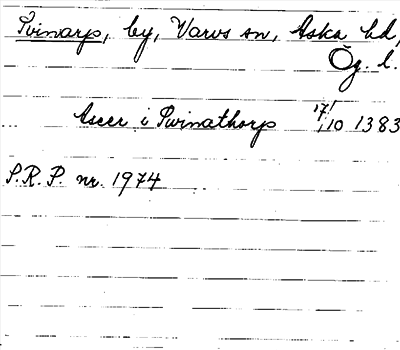 Tvinarp, by, Varvs sn, Aska hd,
Ög. l.
Ascer i Twinathorp 17/10 1383
S.R.P. nr. 1974